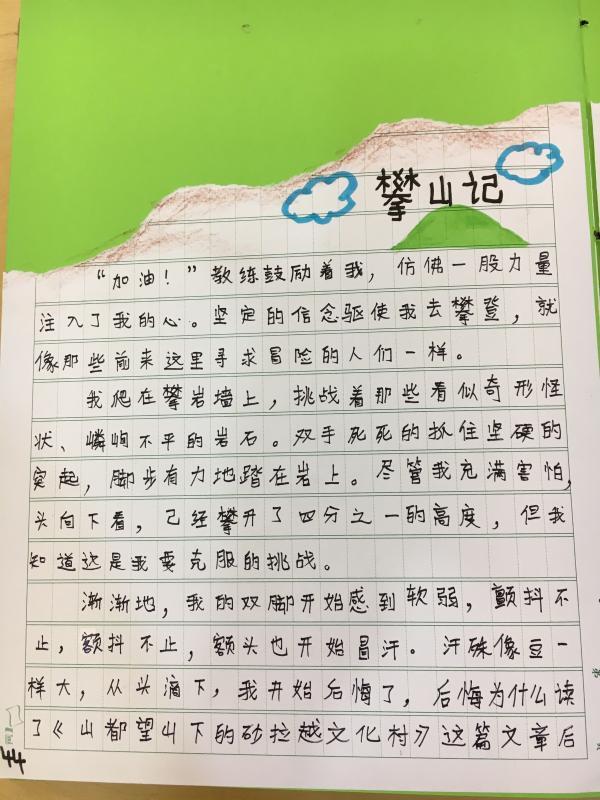 攀山记
“加油！”教练鼓励着我，仿佛一股力量
注入了我的心。坚定的信念驱使我去攀登，就
像那些前来这里寻求冒险的人们一样。
我爬在攀岩墙上，挑战着那些看似奇形怪
状、嶙峋不平的岩石。双手死死的抓住坚硬的
突起，脚步有力地踏在岩上。尽管我充满害怕，
头向下看，已经攀升了四分之一的高度，但我
知道这是我要克服的挑战。
渐渐地，我的双脚开始感到软弱，颤抖不
止，额抖不止，额头也开始冒汗。汗珠像豆一
样大，从头滴下，我开始后悔了，后悔为什么读
了《山都望山下的砂拉越文化村》这篇文章后